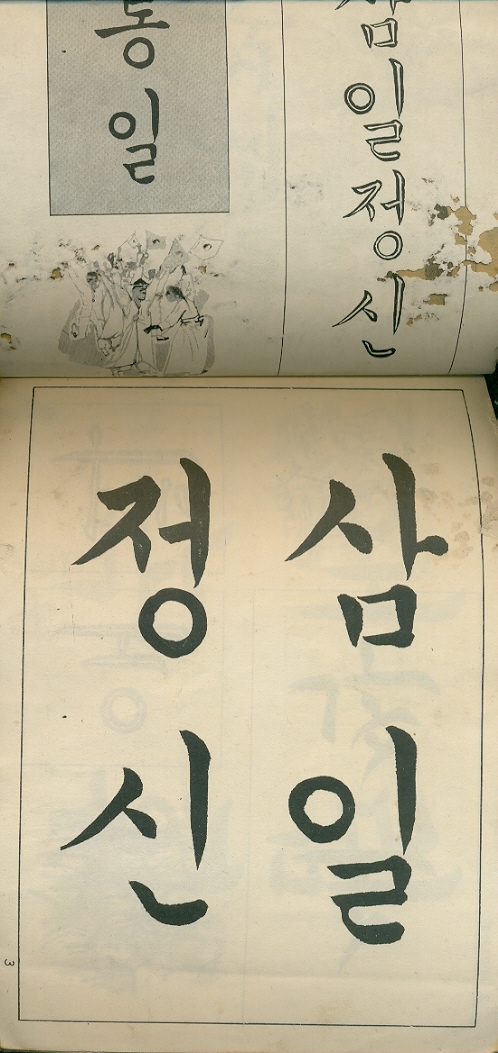 삼일정신
동일
삼일
정신
3